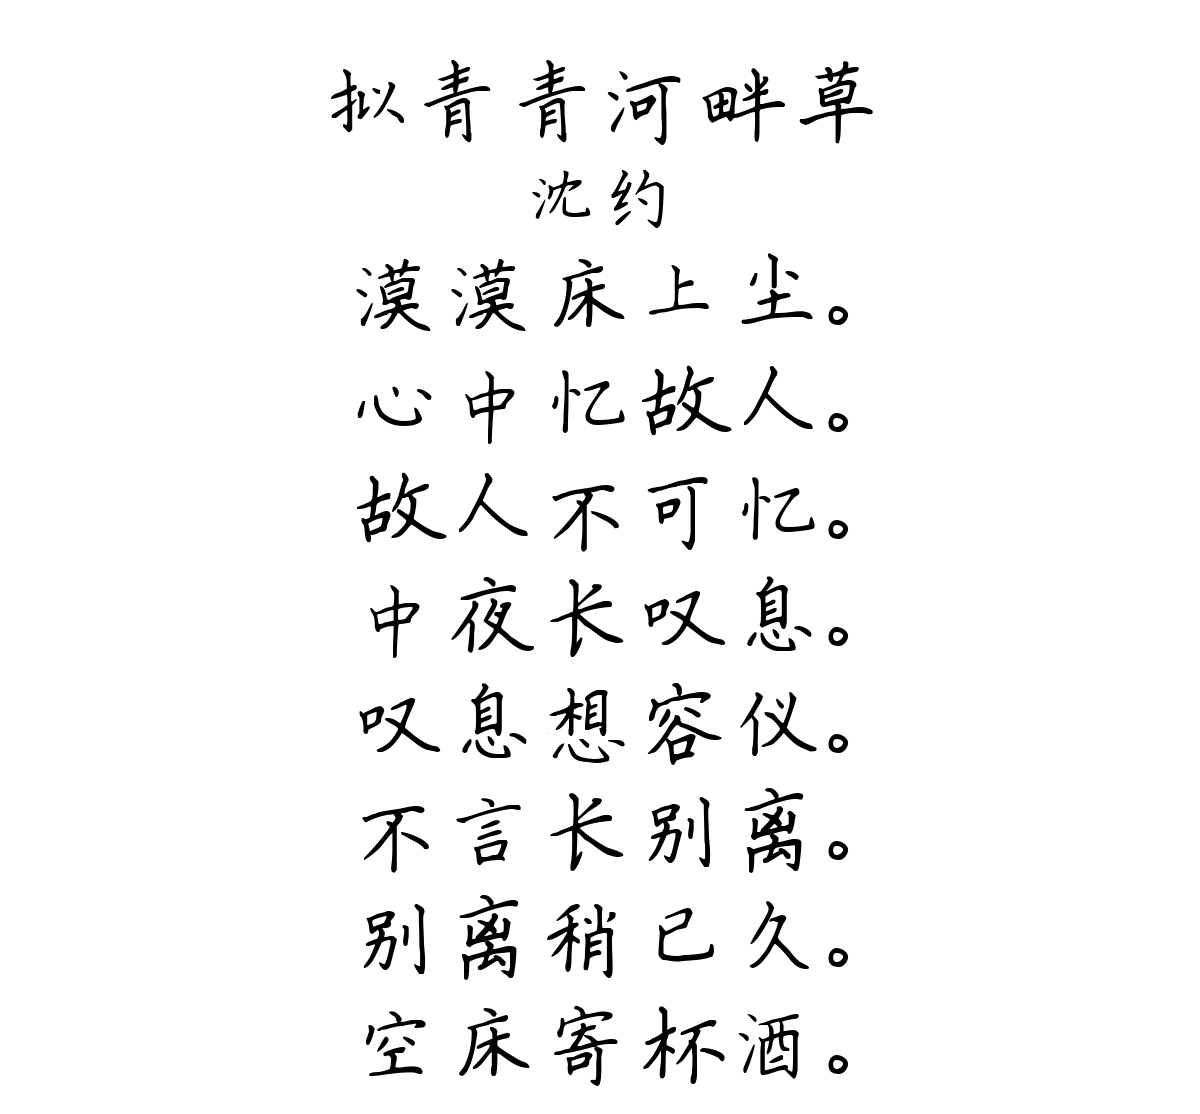 拟青青河畔草
沈约
漠漠床上尘。
心中忆故人。
故人不可忆。
中夜长叹息。
叹息想容仪。
不言长别离。
别离稍已久。
空床寄杯酒。